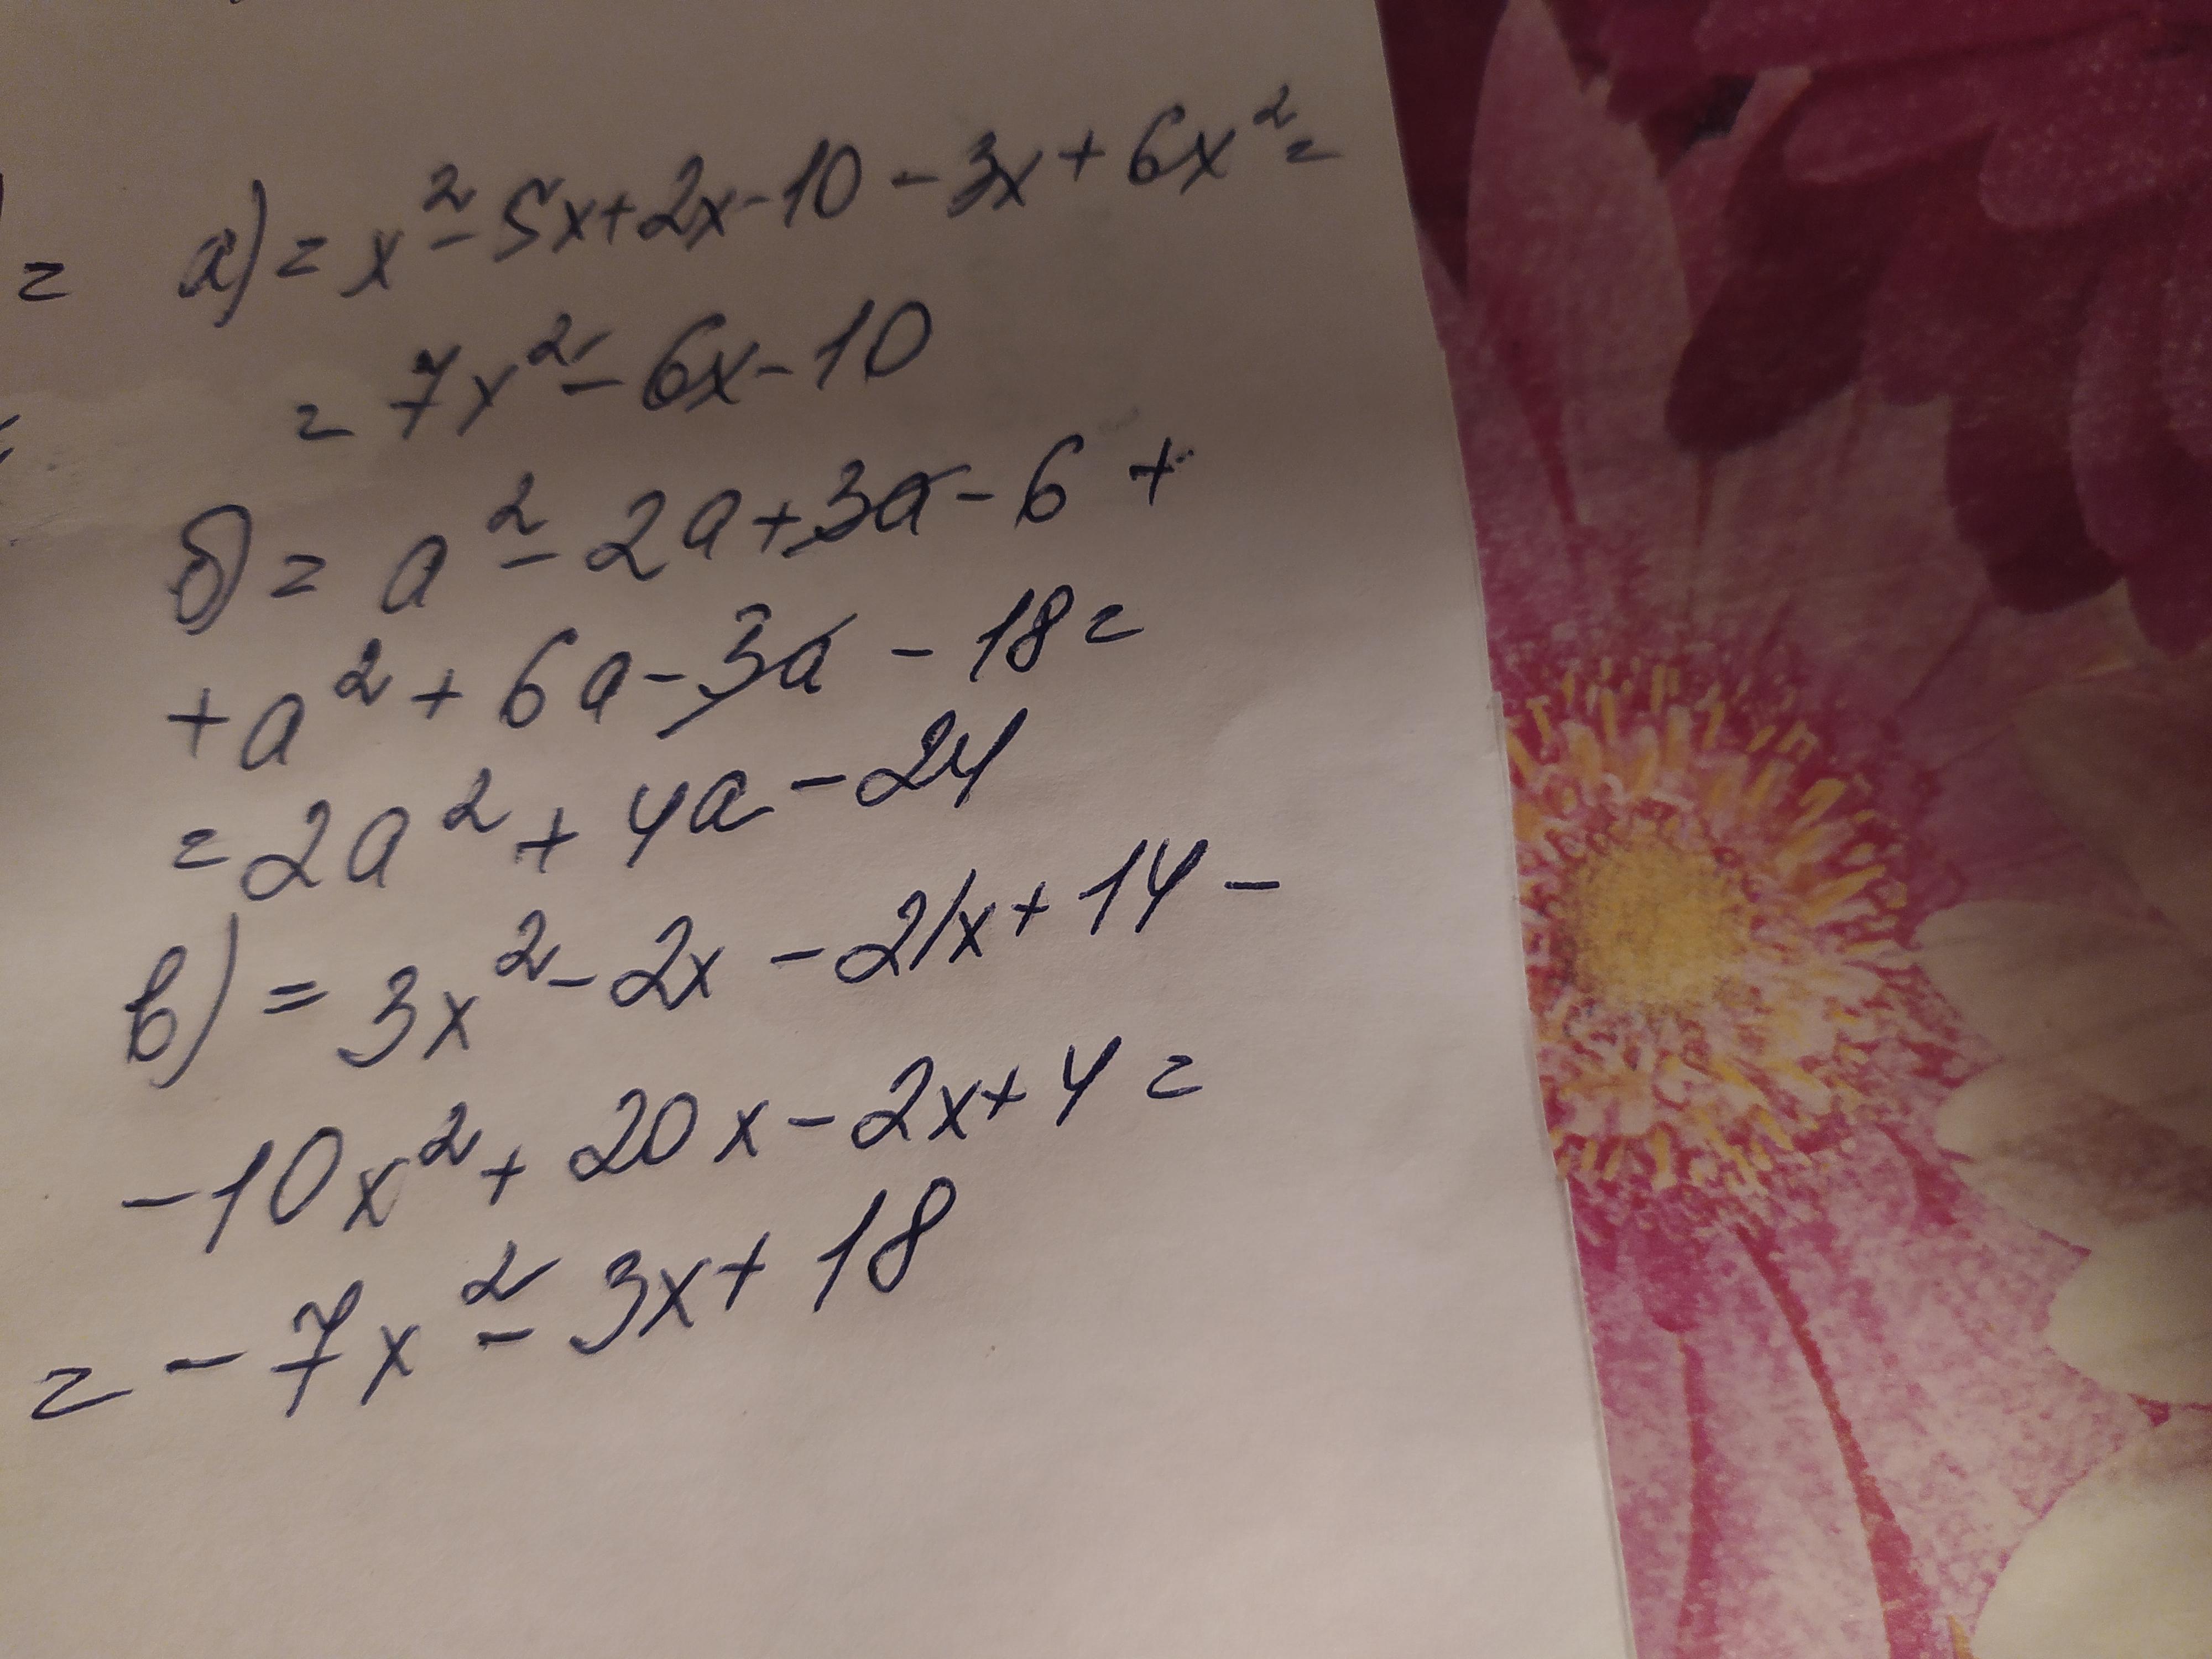 = а) = x² - 5x + 2x - 10 - 3x + 6x² =
= 7x² - 6x - 10
б) = a² - 2a + 3a - 6 +
+ a² + 6a - 3a - 18 =
= 2a² + 4a - 24
в) = 3x² - 2x - 21x + 14 -
- 10x² + 20x - 2x + 4 =
= - 7x² - 3x + 18